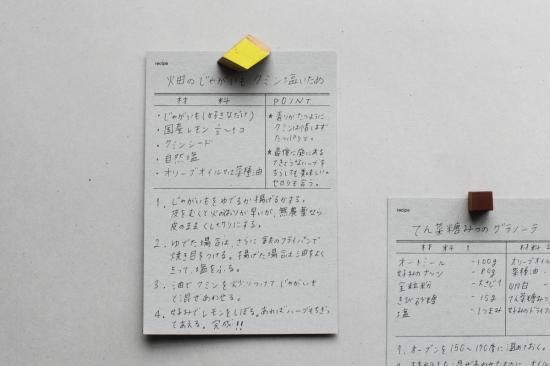 recipe
畑のじゃがいも クミン塩いため
材 料
・じゃがいも(好きなだけ)
・国産レモン ½〜1コ
・クミンシード
・自然塩
・オリーブオイル又は菜種油
POINT
★香りがたつように
クミンは惜しまず
たっぷりと。
★最後に庭にある
ちぎって
セロリも合う。
1. じゃがいもをゆでるか揚げるかする。
皮をむくと火の通りが早いが、無農薬なら
皮のまま
2. ゆでた場合は、さらに フライパンで
焼き目をつける。揚げた場合は油をよく
きって、塩をふる。
3. 油でクミンを じゃがいも
と混ぜあわせる。
4. 好みでレモンをしぼる。あればハーブもちぎっ
てあえる。完成!!
recipe
てん菜糖みつのグラノーラ
材 料
オートミール -100g
好みのナッツ - 80g
全粒粉
きび砂糖 - 15g
塩 - 1つまみ
材料
オリーブオイル
菜種油
てん菜糖みつ
好みのドライフ
1. オーブンを150〜170度に温めておく。